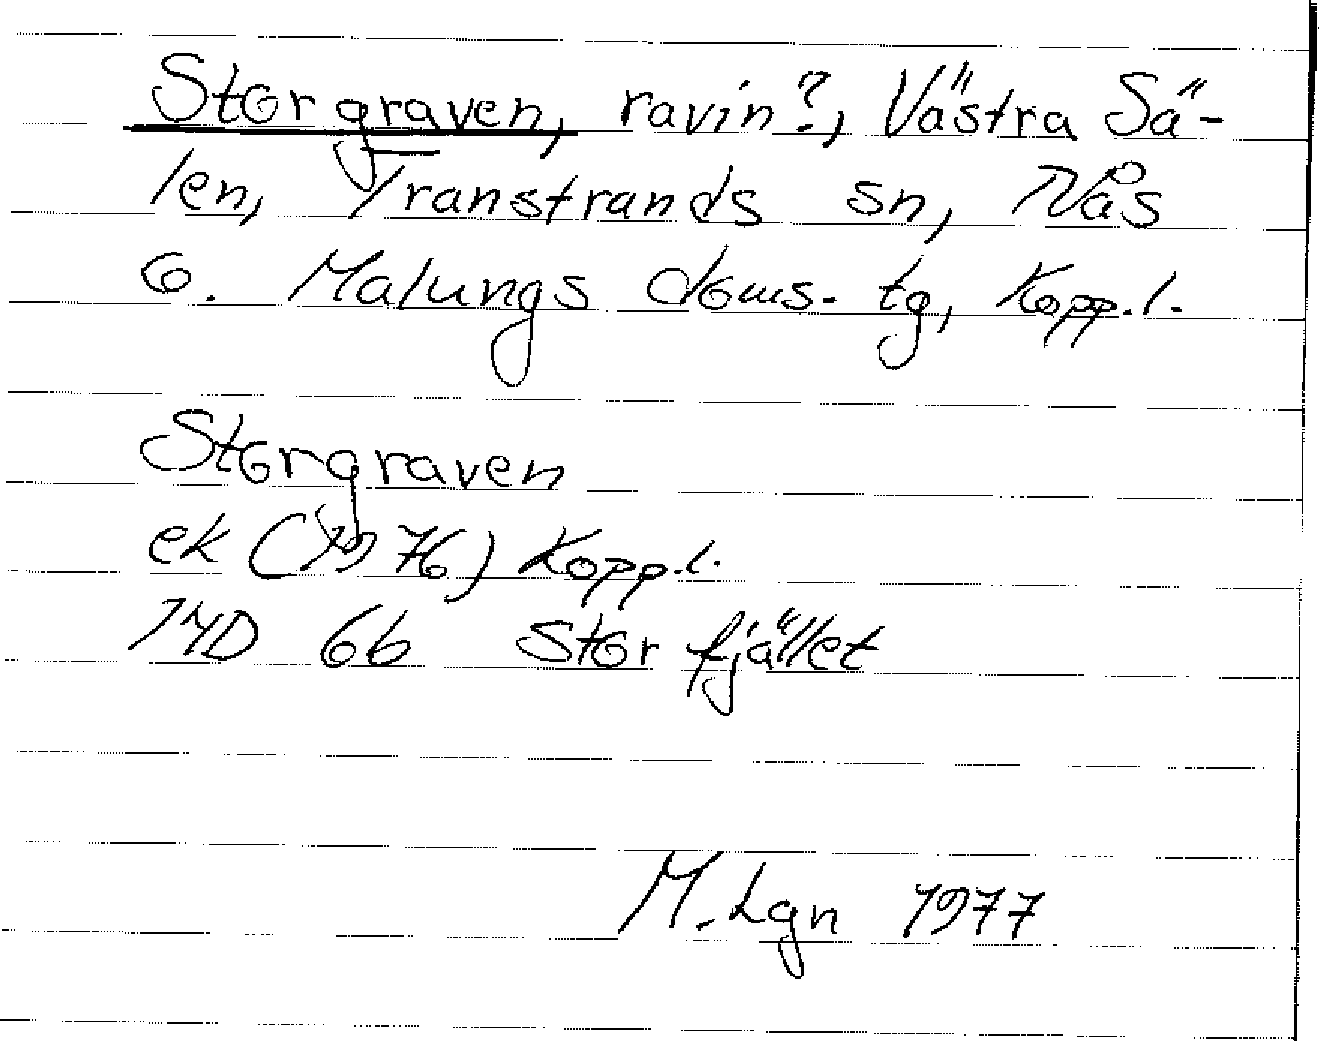 Storgraven, ravin?, Västra Sä-
len, Transtrands sn, Nås
o. Malungs doms. tg, Kopp. l.
Storgraven
ek (1976) Kopp. l.
14D 6b Storfjället
M. Lgn 1977